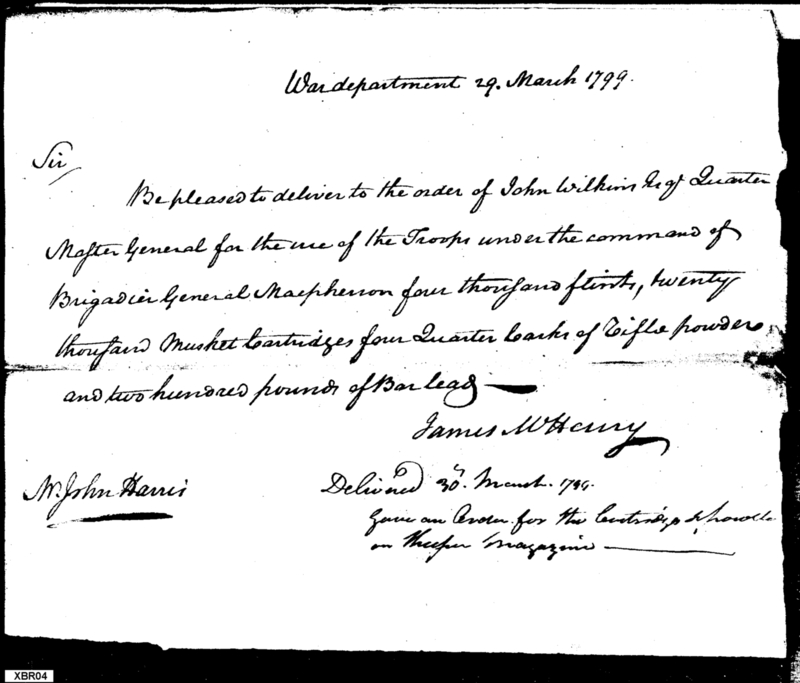 War department 29. March 1799.
Sir
Be pleased to deliver to the order of John Wilkins Esqr Quarter
Master General for the use of the Troops under the command of
Brigadier General Macpherson four thousand flints, twenty
thousand Musket Cartridges four Quarter Casks of Rifle powder
and two hundred pounds of Bar lead
James McHenry
Mr. John Harris
Delivered 30th. March. 1799.
Gave an Order for the Cartridges & powder
on keeper Magazine
XBR04